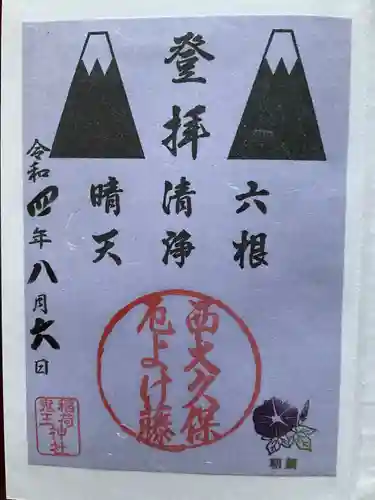 登拝
六根
清浄
晴天
令和四年八月六日
西大久保
厄よけ藤
稲荷神社
鬼王
朝顔